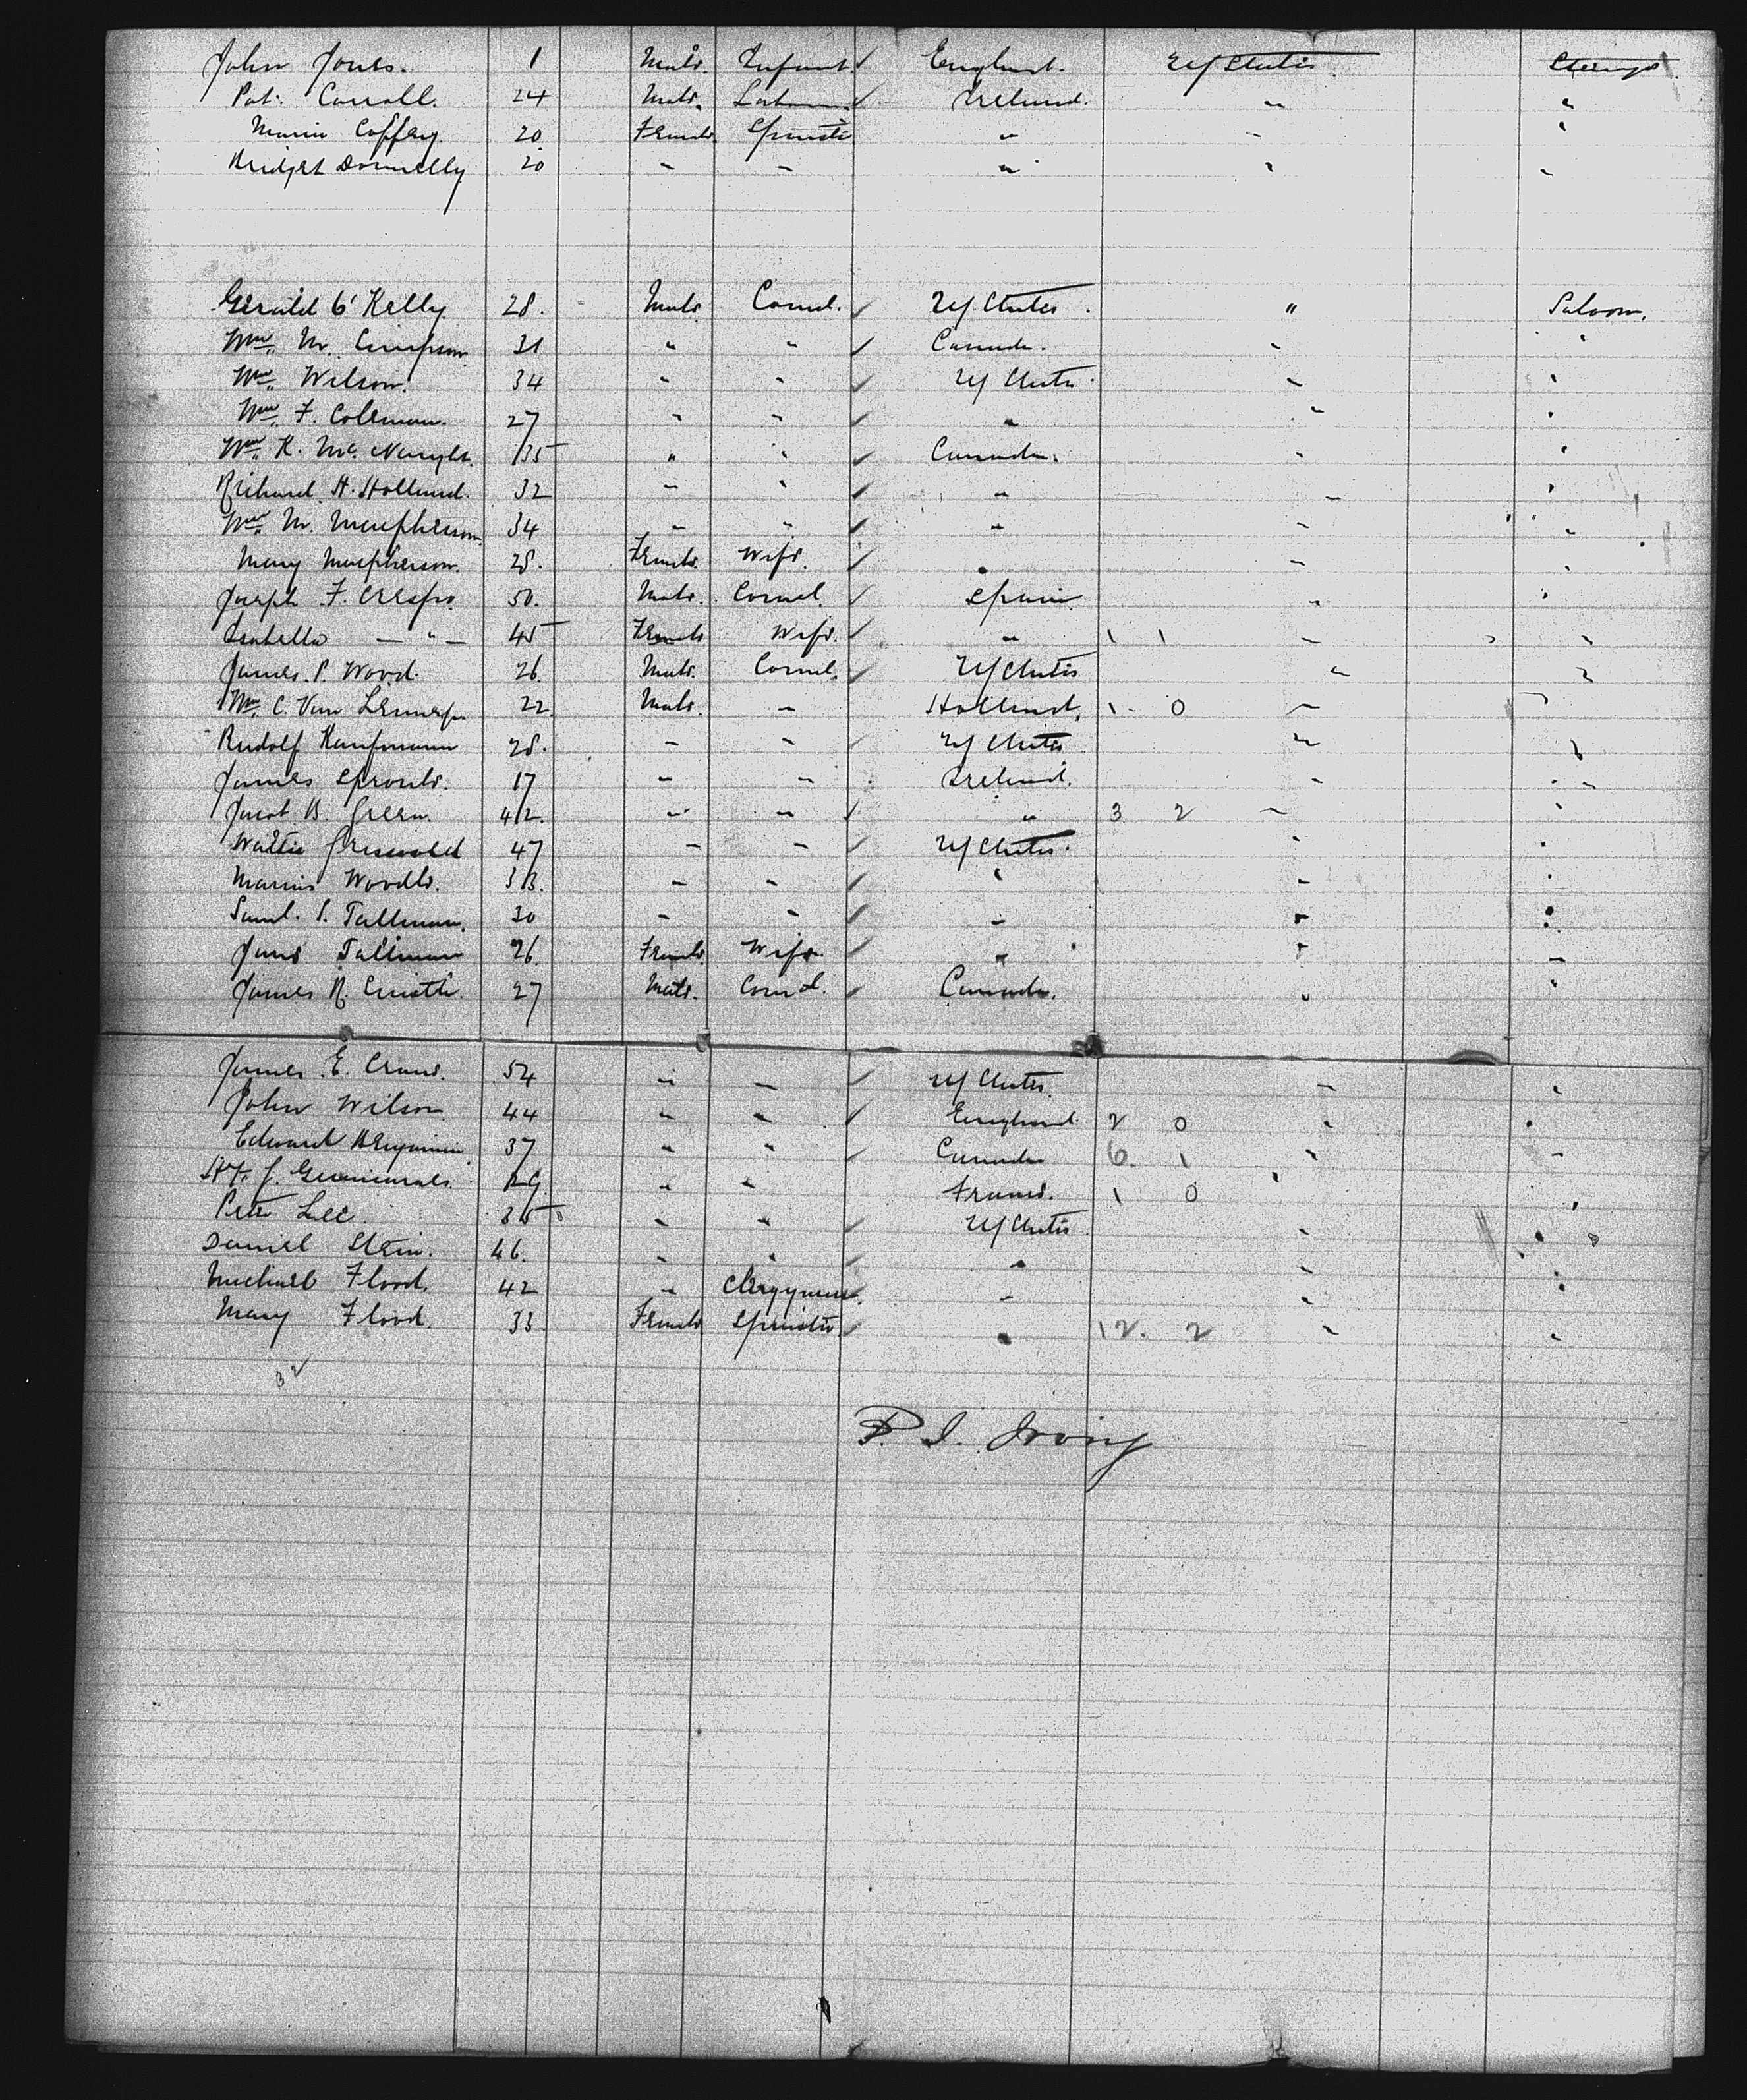 John Jones. 1 Male. Infant. England. U/States. Steerage.
Pat. Carroll. 24 Male. Laborer Ireland. " "
Maria Coffey. 20 Female. Spinster " " "
Bridget Donnelly 20 " " " " "
Gerald O'Kelly. 28. Male Comcl. U/States. " Saloon.
Wm. M. Simpson 31 " " Canada. " "
Wm. Wilson. 34 " " U/States. " "
Wm. F. Coleman. 27 " " " " "
Wm. K. Mc. Naught. 35 " " Canada. " "
Richard. H. Holland. 32 " " " " "
Wm. M. Macpherson. 34 " " " " "
Mary Macpherson. 28. Female. Wife. " " "
Joseph F. Crespo. 50. Male. Comcl. Spain " "
Isabella — " — 45 Female Wife. " 1 1 " "
James. P. Wood. 26 Male. Comcl. U/States " "
Wm. C. Van 22. Male. " Holland. 1 - 0 " "
Rudolf Kaufmann 28. " " U/States " "
James Sproule. 17 " " Ireland. " "
Jacob B. Green. 42. " " " 3 2 " "
Walter Griswold 47 " " U/States. " "
Marius Woodle. 33. " " " " "
Saml. S. Tallman. 30 " " " " "
Jane Tallman 26. Female. Wife. " " "
James R. 27 Male. Comcl. Canada. " "
James. E. Crane. 54 " " U/States. " "
John Wilson 44 " " England 2 0 " "
Edward Benjamin 37 " " Canada 6. 1 " "
" " France. 1 0 " "
Peter Lee. 35 " " U/States " "
Daniel Stein. 46. " " " " "
Michael Flood. 42 " Clergyman. " " "
Mary Flood. 33 Female Spinster " 12. 2 " "
32
P. S. Irving